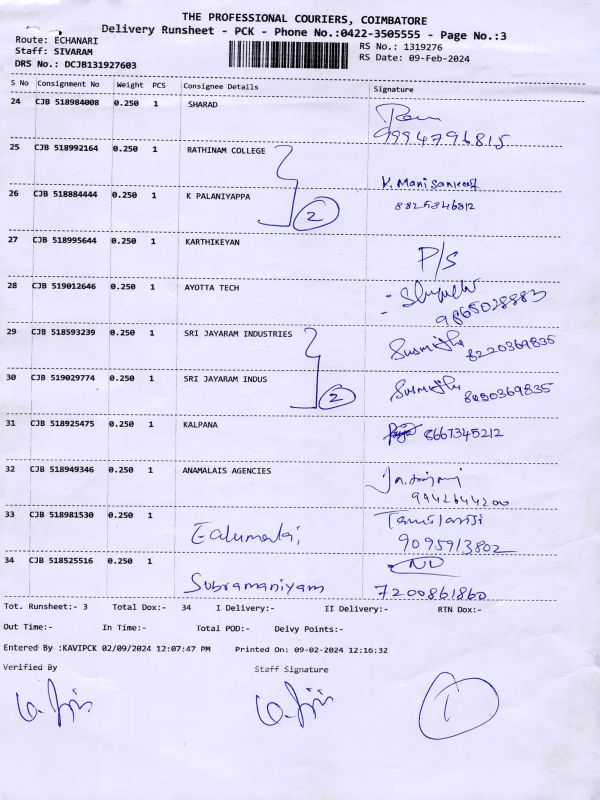 THE PROFESSIONAL COURIERS, COIMBATORE
Delivery Runsheet - PCK - Phone No.:0422-3505555 - Page No.:3
Route: ECHANARI
Staff: SIVARAM
DRS No.: DCJB131927603
RS No.: 1319276
RS Date: 09-Feb-2024
S No Consignment No Weight PCS Consignee Details Signature
24 CJB 518984008 0.250 1 SHARAD
9994796815
25 CJB 518992164 0.250 1 RATHINAM COLLEGE
26 CJB 518884444 0.250 1 K PALANIYAPPA
2
8825846812
27 CJB 518995644 0.250 1 KARTHIKEYAN P/S
28 CJB 519012646 0.250 1 AYOTTA TECH
9865028883
29 CJB 518593239 0.250 1 SRI JAYARAM INDUSTRIES
8220369835
30 CJB 519029774 0.250 1 SRI JAYARAM INDUS
2
8220369835
31 CJB 518925475 0.250 1 KALPANA 8667345212
32 CJB 518949346 0.250 1 ANAMALAIS AGENCIES
9942644200
33 CJB 518981530 0.250 1 Ealumalai,
9095913802
34 CJB 518525516 0.250 1 Subramaniyam
7200861860
Tot. Runsheet:- 3 Total Dox:- 34 I Delivery:- II Delivery:- RTN Dox:-
Out Time:- In Time:- Total POD:- Delvy Points:-
Entered By :KAVIPCK 02/09/2024 12:07:47 PM Printed On: 09-02-2024 12:16:32
Verified By Staff Signature
1